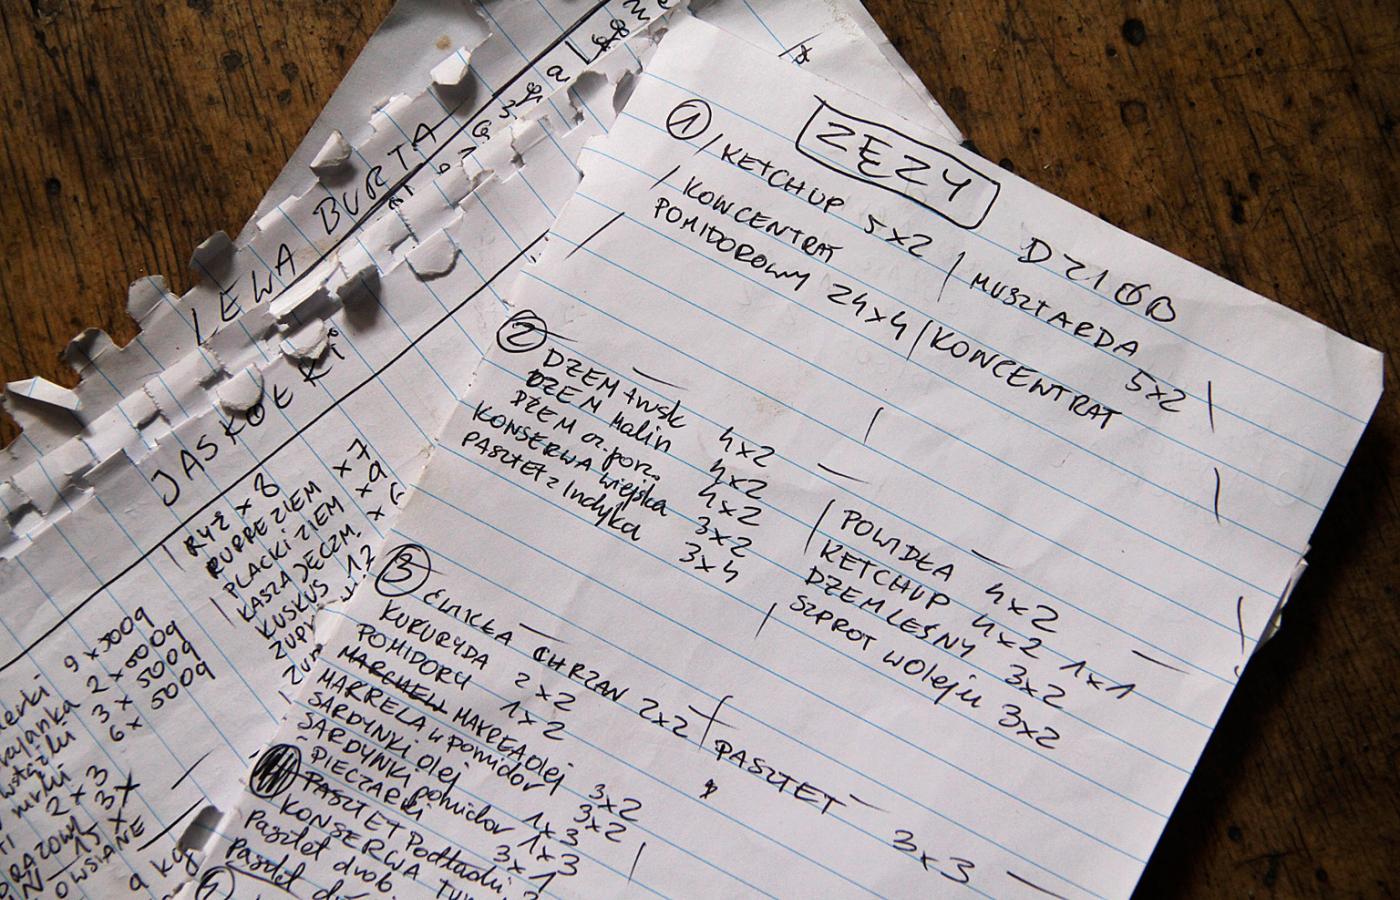 ZĘZY
DZIÓB
① KETCHUP 5x2 MUSZTARDA 5x2
KONCENTRAT
POMIDOROWY 24x4 KONCENTRAT
② DŻEM trusk 4x2
DŻEM Malin 4x2
DŻEM cz. porz. 4x2
KONSERWA wiejska 3x2
PASZTET z Indyka 3x4
POWIDŁA 4x2
KETCHUP 4x2 1x1
DŻEM LEŚNY 3x2
SZPROT w oleju 3x2
③ ĆWIKŁA CHRZAN 2x2
KUKURYDA 2x2
POMIDORY 1x2
MAKRELA olej 3x2
MAKRELA w pomidor 3x2
SARDYNKI olej 1x3
SARDYNKI pomidor 1x3
PIECZARKI 3x1
PASZTET Podlaski
KONSERWA
Pasztet drob
Pasztet
PASZTET 3x3
LEWA BURTA
JASKÓŁKI
RYŻ x 8
PURRE ZIEM x 7
PLACKI ZIEM x
KASZA JĘCZM. x
KUSKUS 12
ZUPY
9 x 500g
2 x 500g
3 x 500g
6 x 500g
2 x 3
3x
15 x
OWSIANE
9 kg